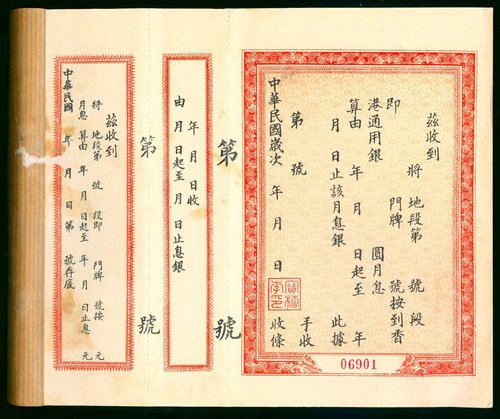 茲收到
將 地段第 號 段
即 門牌 號按到香
港通用銀 圓月息
算由 年 月 日起至 年
月 日止該月息銀 此據
第 號 手收
中華民國歲次 年 月 日 收條
06901
第 號
年 月 日收
由 月 日起至 月 日止息銀
第 號
茲收到
將 地段第 號 段即 門牌 號按 元
月息 算由 年 月 日起至 年 月 日止息 元
中華民國 年 月 日 第 號存底